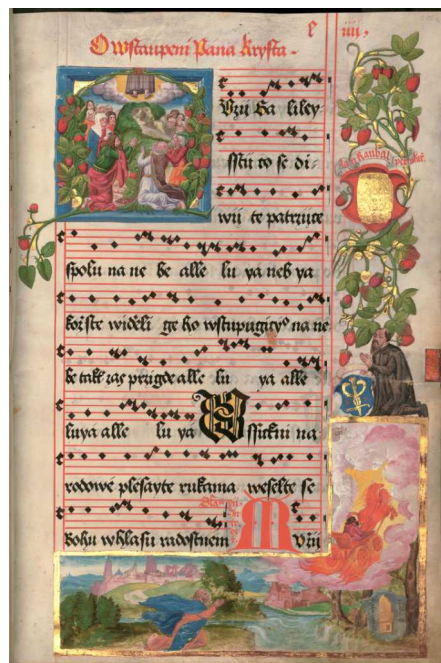 e iiii,
O wstaupeni Pana Krysta.
Vzij Ga liley
sstij co se di-
wij te patrzijce
spolu na ne be alle lu ya neb ya
kozste widěli ge ho wstupugicyo na ne
be takt zas przigde alle lu ya alle
luya alle lu yá Wssickni na
rodowé plesayte rukama weselte se
Bohu whlasu radostnem M Vzij